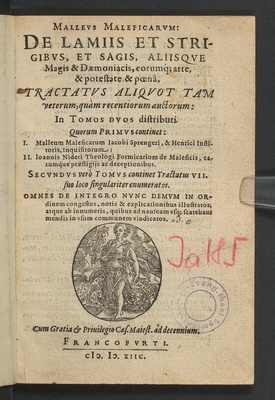 MALLEVS MALEFICARVM:
DE LAMIIS ET STRI-
GIBVS, ET SAGIS, ALIISQVE
Magis & Dæmoniacis, eorumq; arte,
& potestate, & pœnâ,
TRACTATVS ALIQVOT TAM
veterum, quàm recentiorum auctorum:
In TOMOS DVOS distributi.
Quorum PRIMVS continet:
I. Malleum Maleficarum Iacobi Sprengeri, & Henrici Insti-
toris, Inquisitorum:
II. Ioannis Nideri Theologi Formicarium de Maleficis, ea-
rumque præstigijs ac deceptionibus.
SECVNDVS verò TOMVS continet Tractatus VII.
suo loco singulariter enumeratos.
OMNES DE INTEGRO NVNC DEMVM IN OR-
dinem congestos, notis & explicationibus illustratos,
atque ab innumeris, quibus ad nauseam vsq; scatebant
mendis in vsum communem vindicatos.
Ja 1185
Cum Gratia & Priuilegio Cæs. Maiest. ad decennium.
FRANCOFVRTI.
cIɔ. Iɔ. XIIC.